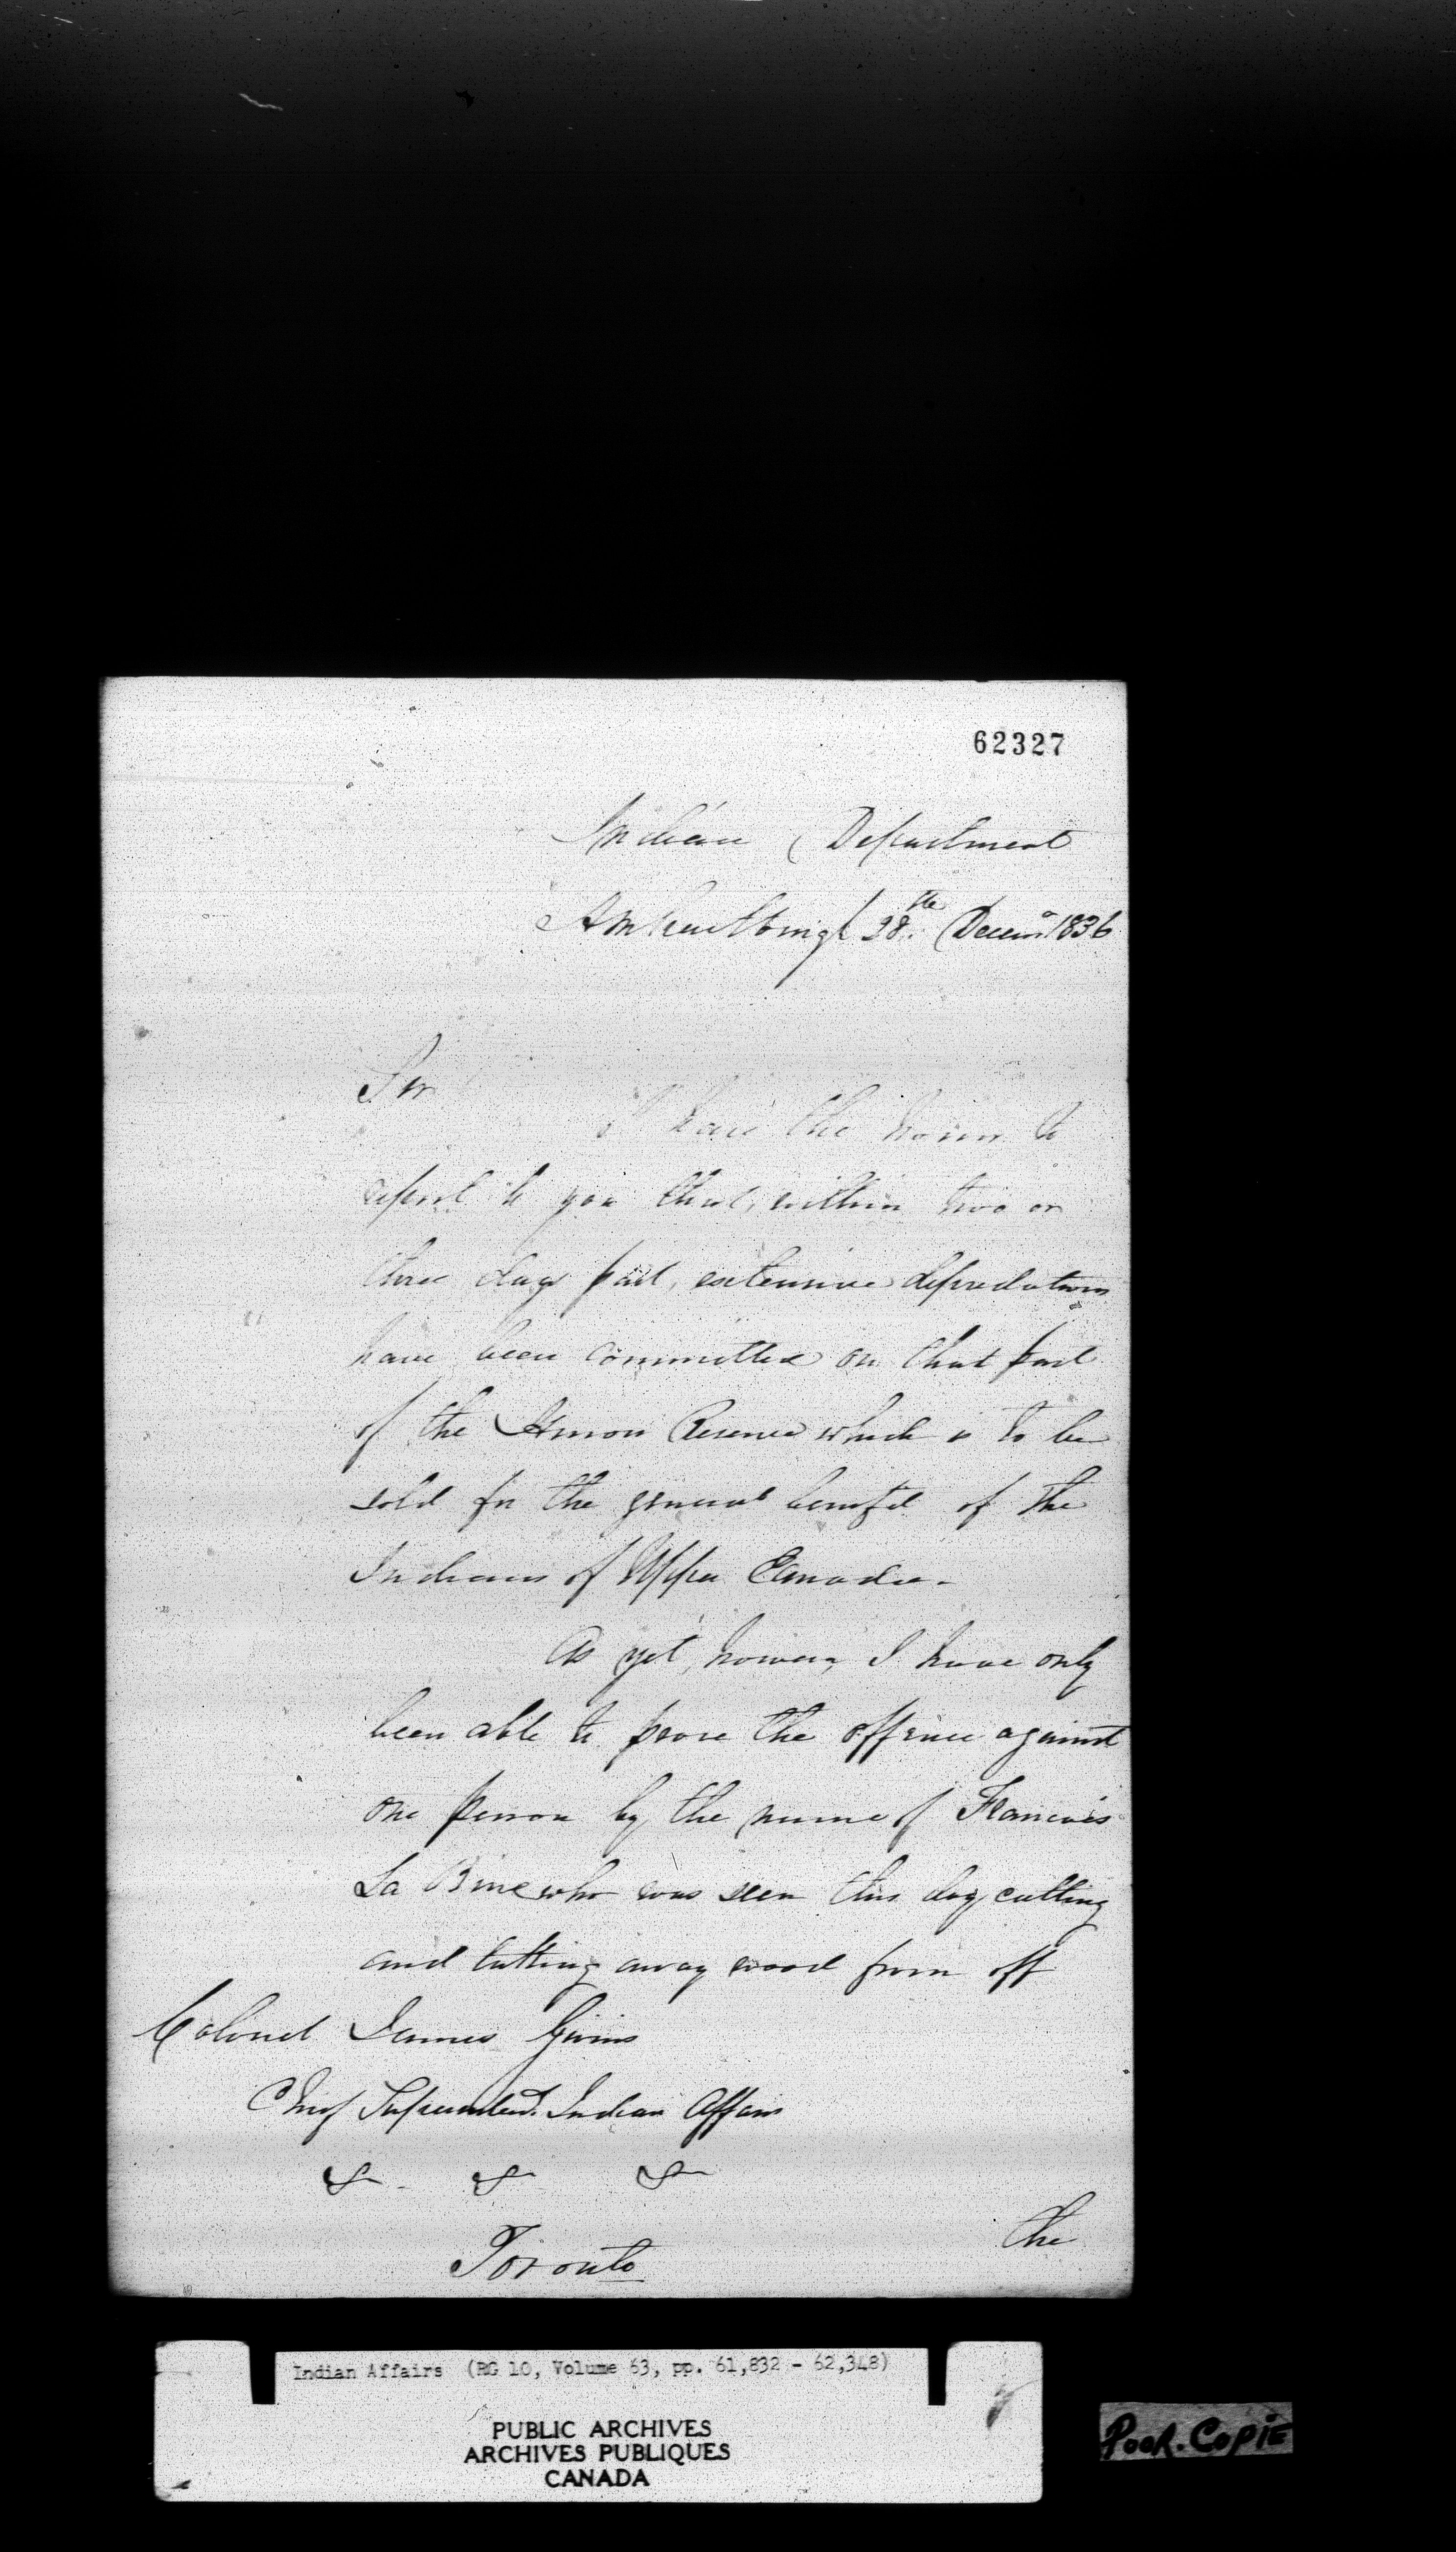 62327
Indian Department
Amherstburgh 28th Decemr 1836
Sir
I have the honor to
report to you that, within two or
three days past, extensive depredations
have been committed on that part
of the Huron Reserve which is to be
sold for the general benefit of the
Indians of Upper Canada.
As yet, however, I have only
been able to prove the offence against
one person by the name of Francois
La Bine who was seen this day cutting
and taking away wood from off
Colonel James Givins
Chief Superintendt. Indian Affairs
& & &
Toronto
the
Indian Affairs (RG 10, Volume 63, pp. 61,832 - 62,348)
PUBLIC ARCHIVES
ARCHIVES PUBLIQUES
CANADA
POOR. COPIE